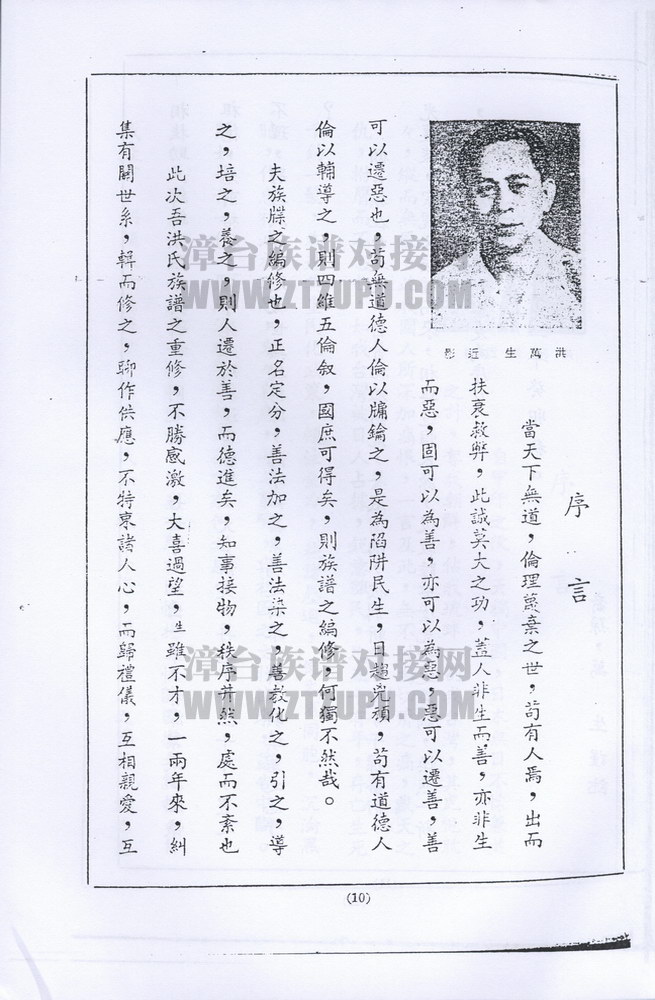 序言
洪萬生近影
當天下無道，倫理蔑棄之世，苟有人焉，出而
扶衰救弊，此誠莫大之功，蓋人非生而善，亦非生
而惡，固可以為善，亦可以為惡，惡可以遷善，善
可以遷惡也，苟無道德人倫以牖鑰之，是為陷阱民生，日趨兇頑，苟有道德人
倫以輔導之，則四維五倫叙，國庶可得矣，則族譜之編修，何獨不然哉。
夫族牒之編修也，正名定分，善法加之，善法染之，善教化之，引之，導
之，培之，養之，則人遷於善，而德進矣，知事接物，秩序井然，處而不紊也
此次吾洪氏族譜之重修，不勝感激，大喜過望，生雖不才，一兩年來，糾
集有關世系，輯而修之，聊作供應，不特束諸人心，而歸禮儀，互相親愛，互
(10)
漳台族谱对接网
WWW.ZTZUPU.COM
漳台族谱对接网
WWW.ZTZUPU.COM